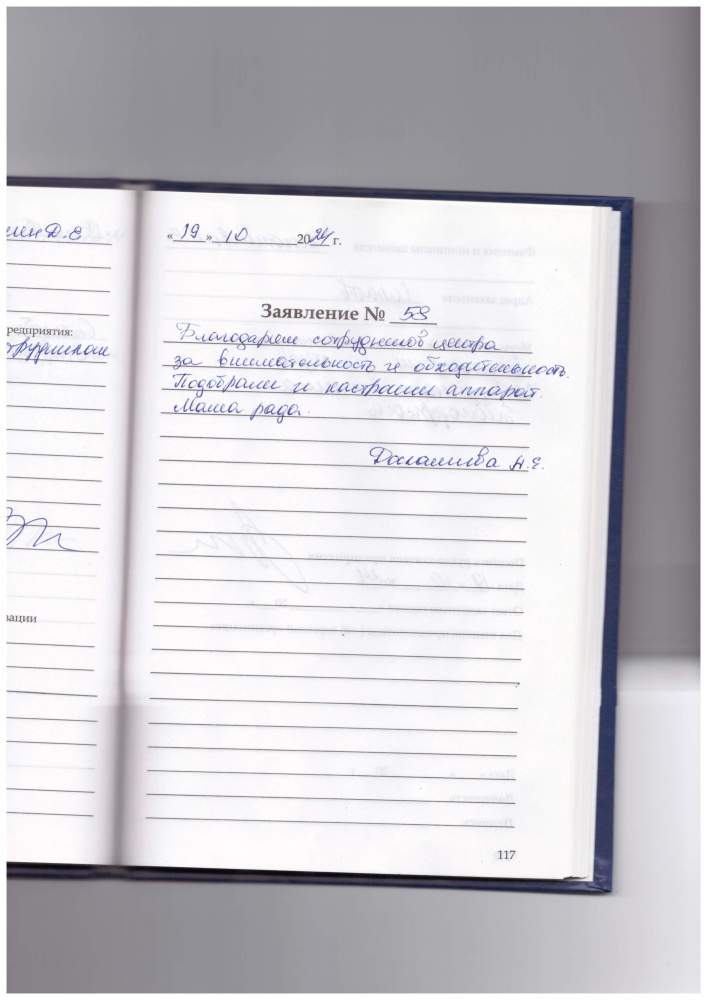 Д.Е
редприятия:
зации
« 19 » 10 2024 г.
Заявление № 58
Благодарим сотрудников центра
за внимательность и обходительность.
Подобрали и настроили аппарат.
Мама рада.
Н.Е.
117